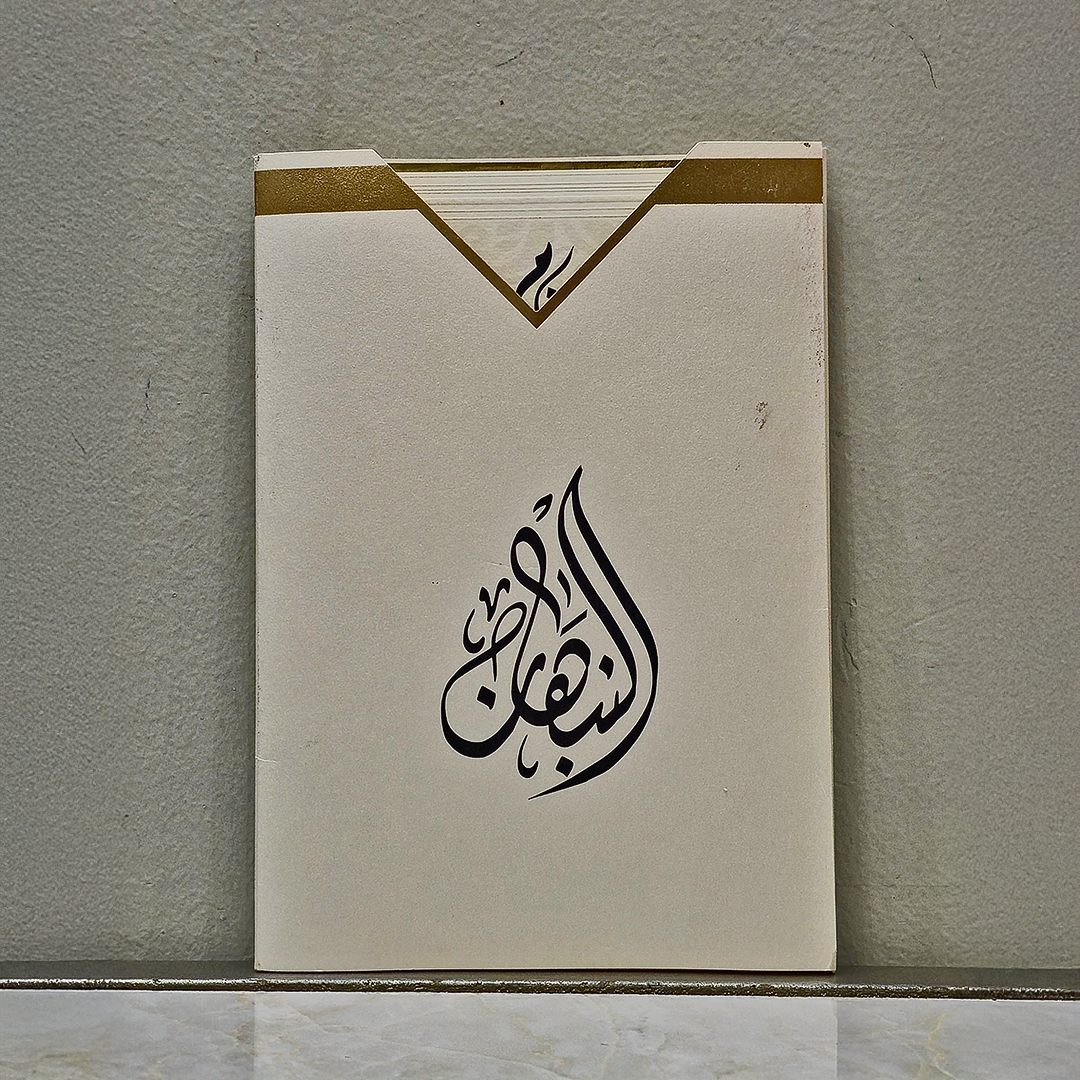 النبهان